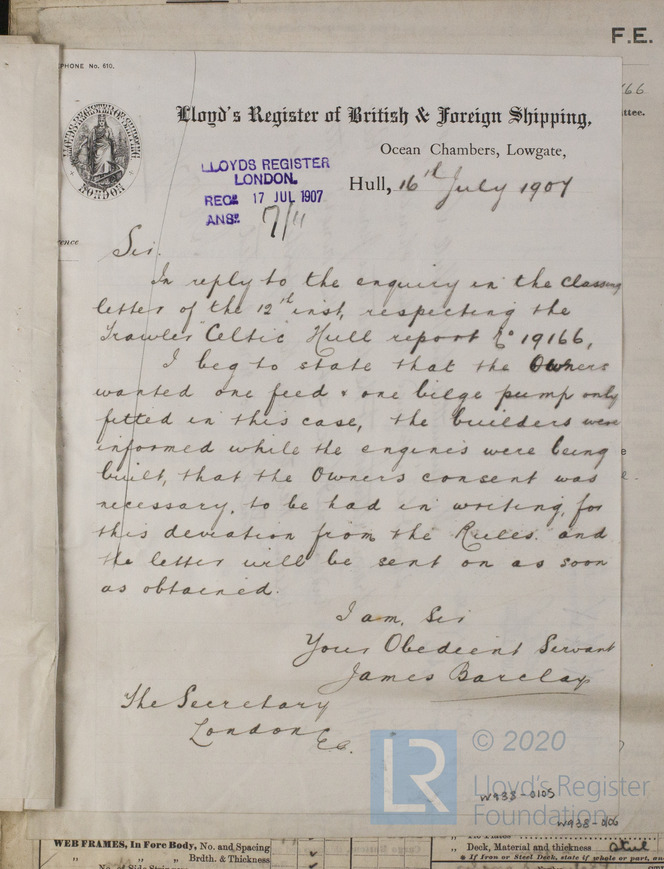 F.E.
PHONE No. 610.
166
Lloyd's Register of British & Foreign Shipping,
ttee.
LLOYD'S REGISTER OF SHIPPING
LONDON
Ocean Chambers, Lowgate,
LLOYDS REGISTER
LONDON.
RECD. 17 JUL 1907
ANSD. 7/11
Hull, 16th July 1907
ence
Sir.
In reply to the enquiry in the Classing
letter of the 12th inst, respecting the
Trawler "Celtic" Hull report No 19166,
I beg to state that the Owners
wanted one feed & one bilge pump only
fitted in this case, the builders were
informed while the engines were being
built, that the Owners consent was
necessary, to be had in writing, for
this deviation from the Rules. and
the letter will be sent on as soon
as obtained.
I am, Sir
Your Obedient Servant
James Barclay
The Secretary
London E.C.
LR
© 2020
Lloyd's Register
Foundation
W938-0105
W938-0106
WEB FRAMES, In Fore Body, No. and Spacing
" " " Brdth. & Thickness
No. of Side Stringers
" Tie Plates
" Deck, Material and thickness Steel
* If Iron or Steel Deck, state if whole or part, an